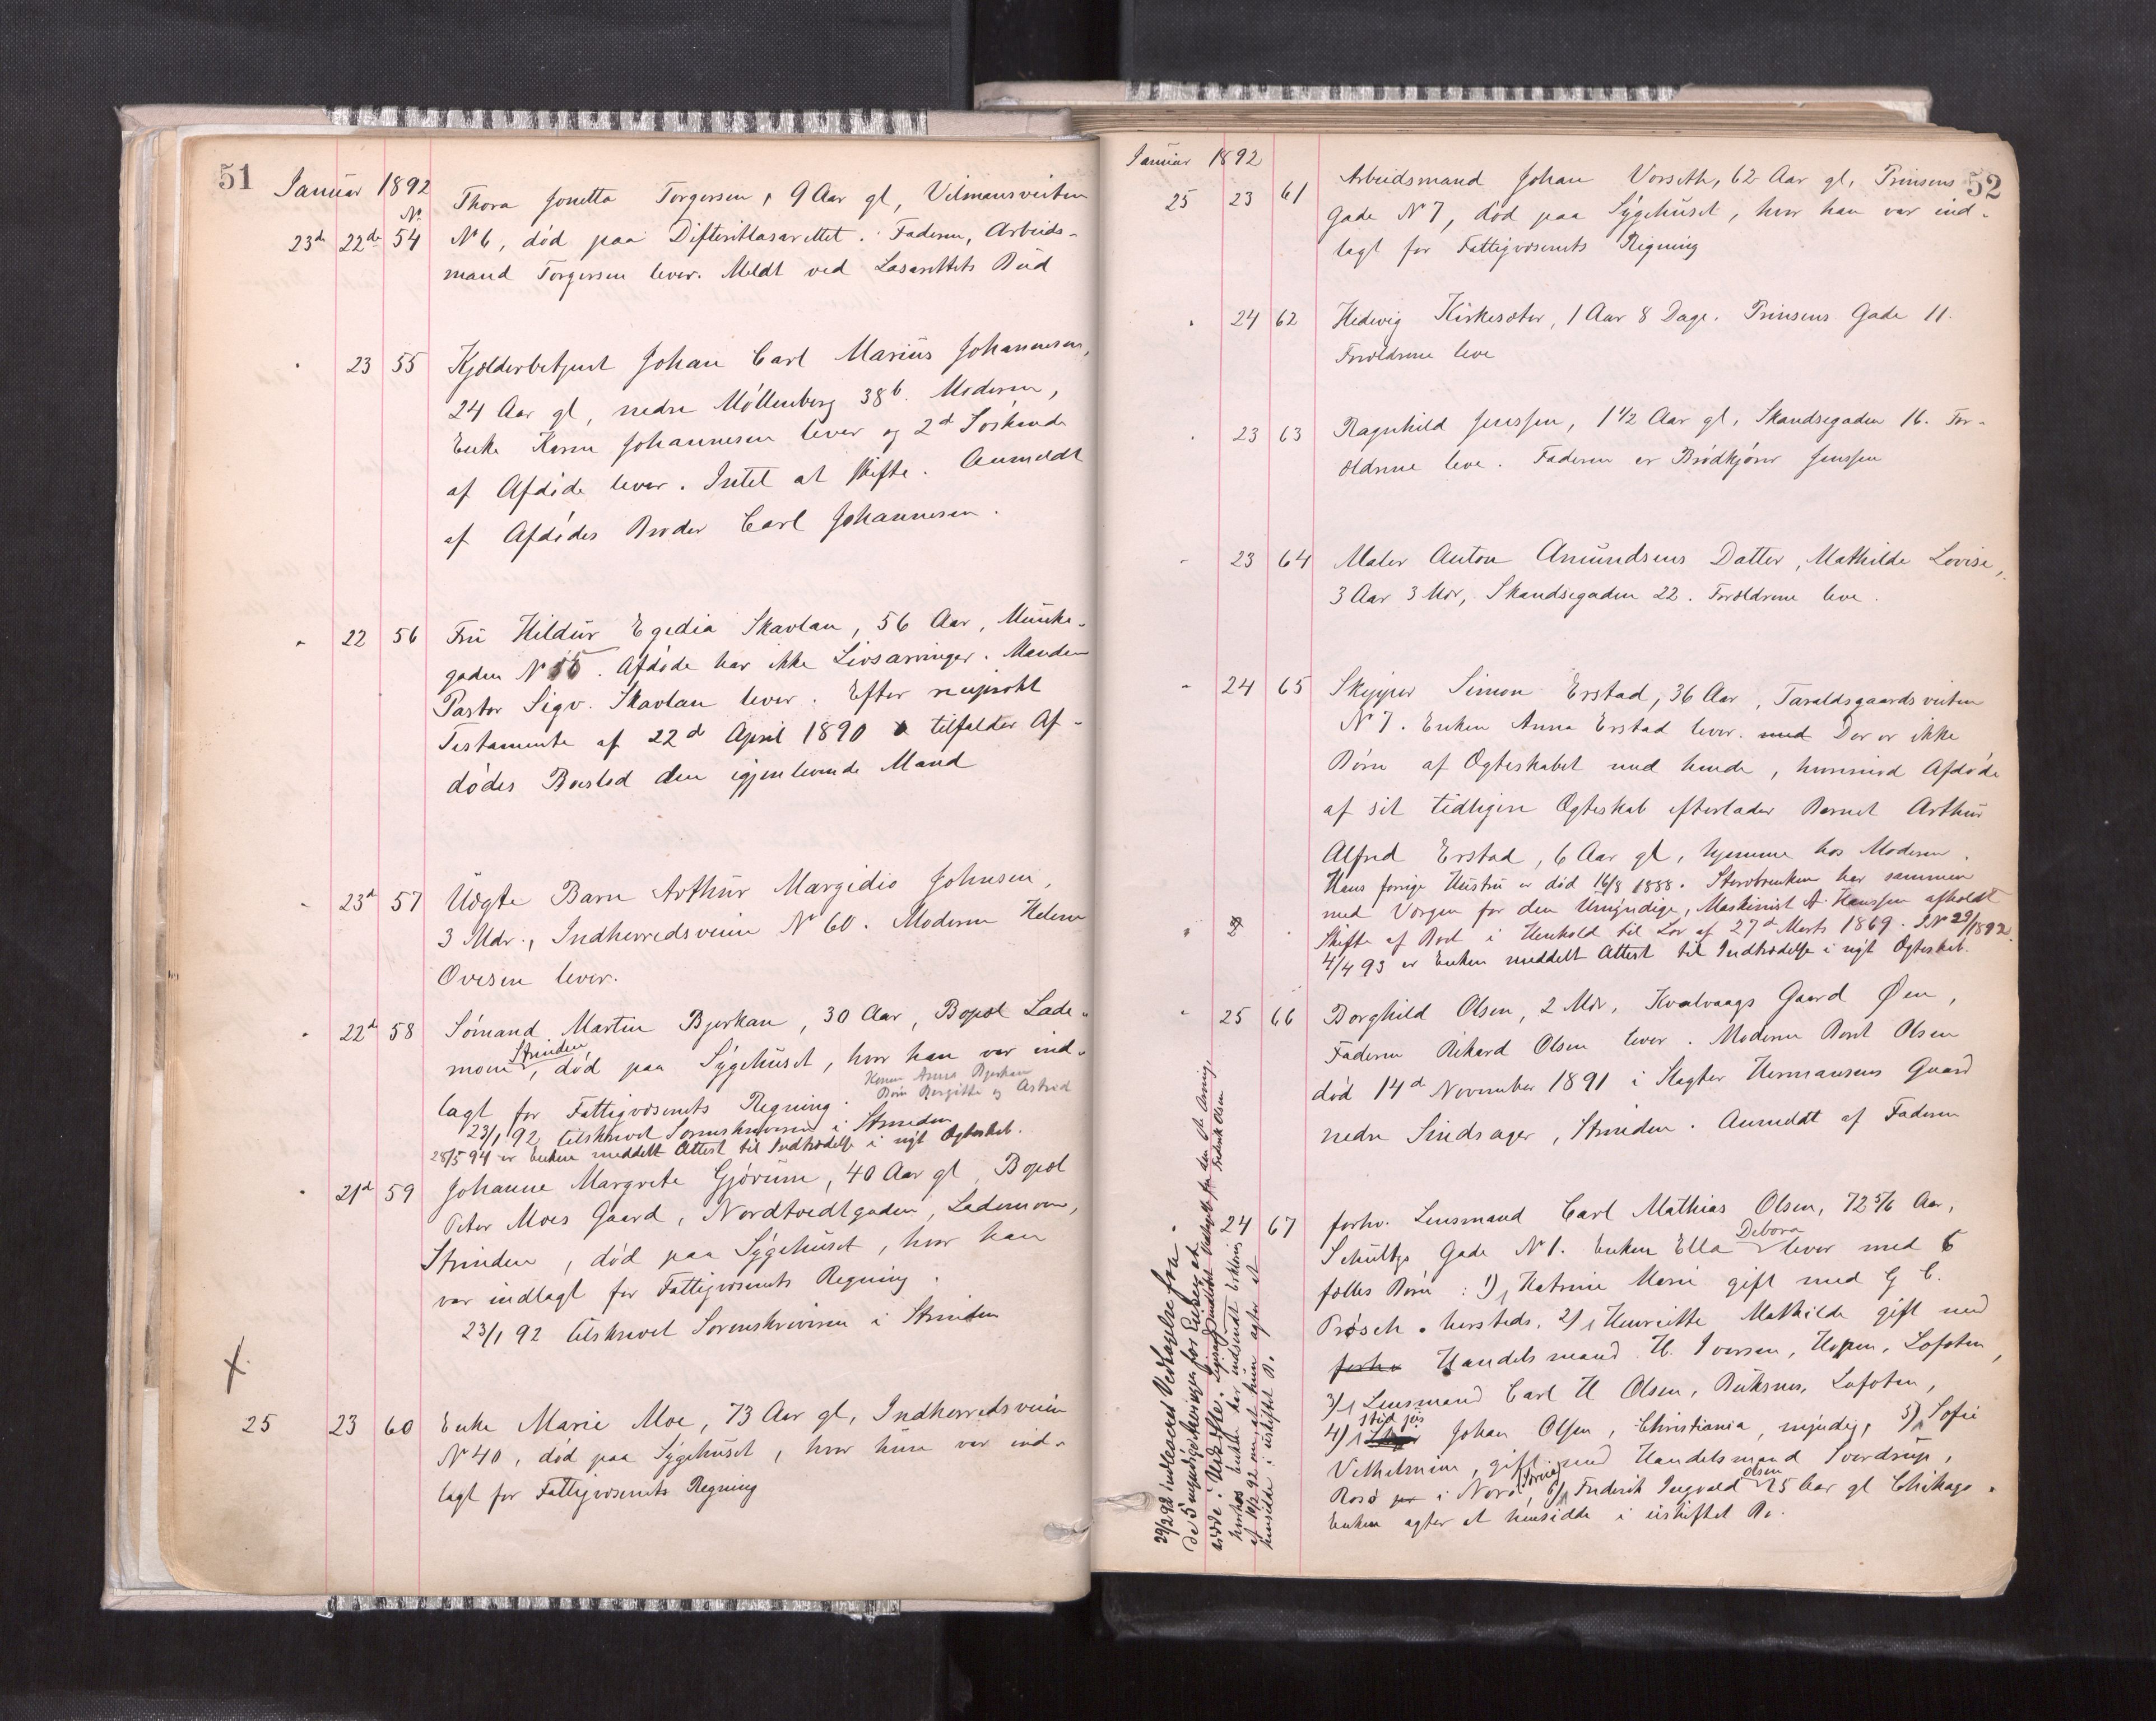 51
Januar 1892
No
23de 22de 54 Thora Jonetta Torgersen, 9 Aar gl, Vilmansveiten
N 6, død paa Difteritlasarettet. Faderen, Arbeids-
mand Torgersen lever. Meldt ved Lasarettets Bud
23 55 Kjælderbetjent Johan Carl Marius Johannesen,
24 Aar gl, nedre Möllenberg 38b. Moderen,
Enke Karen Johannesen lever og 2de Söskende
af Afdöde lever. Intet at skifte. Anmeldt
af Afdödes Broder Carl Johannesen.
" 22 56 Fru Hildur Egedia Skavlan, 56 Aar, Munke-
gaden N 15. Afdöde har ikke Livsarvinger. Manden
Pastor Sigv. Skavlan lever. Efter reciprokt
Testamente af 22d April 1890 tilfalder Af-
dödes Bolod den igjenlevende Mand
" 23d 57 Uægte Barn Arthur Margido Johnsen,
3 Mdr., Indherredsveien N 60. Moderen Helene
Ovesen lever.
" 22d 58 Sömand Martin Bjerkan, 30 Aar, Bopæl Lade-
moen Strinden, död paa Sygehuset, hvor han var ind-
lagt for Fattigvæsenets Regning. Konen Anna Bjerkan
Börn Bergitte og Astrid
23/1 92 tilskrevet Sorenskriveren i Strinden
28/5 94 er Enken meddelt Attest til Indtrædelse i nyt Ægteskab.
" 21d 59 Johanne Margrete Gjörum, 40 Aar gl, Bopæl
Peter Moes Gaard, Nordtvedtgaden, Lademoen,
Strinden, död paa Sygehuset, hvor han
var indlagt for Fattigvæsenets Regning.
23/1 92 tilskrevet Sorenskriveren i Strinden
X
25 23 60 Enke Marie Moe, 73 Aar gl, Indherredsveien
N 40, død paa Sygehuset, hvor hun var ind-
lagt for Fattigvæsenets Regning
52
Januar 1892
25 23 61 Arbeidsmand Johan Vorseth, 62 Aar gl, Prinsens
Gade N 7, död paa Sygehuset, hvor han var ind-
lagt for Fattigvæsenets Regning
" 24 62 Hedevig Kirkesæter, 1 Aar 8 Dage. Prinsens Gade 11.
Forældrene leve
" 23 63 Ragnhild Jenssen, 1 1/2 Aar gl, Skandsegaden 16. For-
ældrene leve. Faderen er Brödkjörer Jenssen
" 23 64 Maler Anton Amundsens Datter, Mathilde Lovise,
3 Aar 3 Mdr, Skandsegaden 22. Forældrene leve.
" 24 65 Skipper Simon Erstad, 36 Aar, Taraldsgaardsveiten
N 7. Enken Anna Erstad lever. med Der er ikke
Börn af Ægteskabet med hende, hvorimod Afdöde
af sit tidligere Ægteskab efterlader Barnet Arthur
Alfred Erstad, 6 Aar gl, hjemme hos Moderen.
Hans forrige Hustru er död 16/8 1888. Storebrenken har sammen
med Vergen for den Umyndige, Maskinist A. Hanssen afholdt
Skifte af Boet i Henhold til Lov af 27d Marts 1869. J.No 29/1892.
4/4 93 er Enken meddelt Attest til Indtrædelse i nyt Ægteskab.
" 25 66 Borghild Olsen, 2 Mdr, Kvalvaags Gaard Øen,
Faderen Rikard Olsen lever. Moderen Berit Olsen
död 14d November 1891 i Slagter Hermansens Gaard
nedre Sindsager, Strinden. Anmeldt af Faderen
" 24 67 forhv. Lensmand Carl Mathias Olsen, 72 5/6 Aar,
Schultzs Gade N 1. Enken Ella Debora lever med 6
fælles Börn: 1) Katrine Marie gift med G. C.
Prösch hersteds. 2) Henriette Mathilde gift med
forhv Handelsmand H. Iversen, Hopen, Lofoten,
3) Lensmand Carl H Olsen, Buksnes, Lofoten,
4) Stud jur Johan Olsen, Christiania, myndig, 5) Sofie
Vilhelmine, gift med Handelsmand Sverdrup,
Rosö i Norö, 6) Frederik Ingvald Olsen 25 Aar gl Chikago.
Enken agter at hensidde i uskiftet Bo.
29/2 92 indleveret Vedtagelse fra
de 5 myndige Arvinger for Enken at
sidde i Uskifte.
Enken har indsendt Erklæring
af 10/2 92 om, at hun agter at
hensidde i uskiftet B.